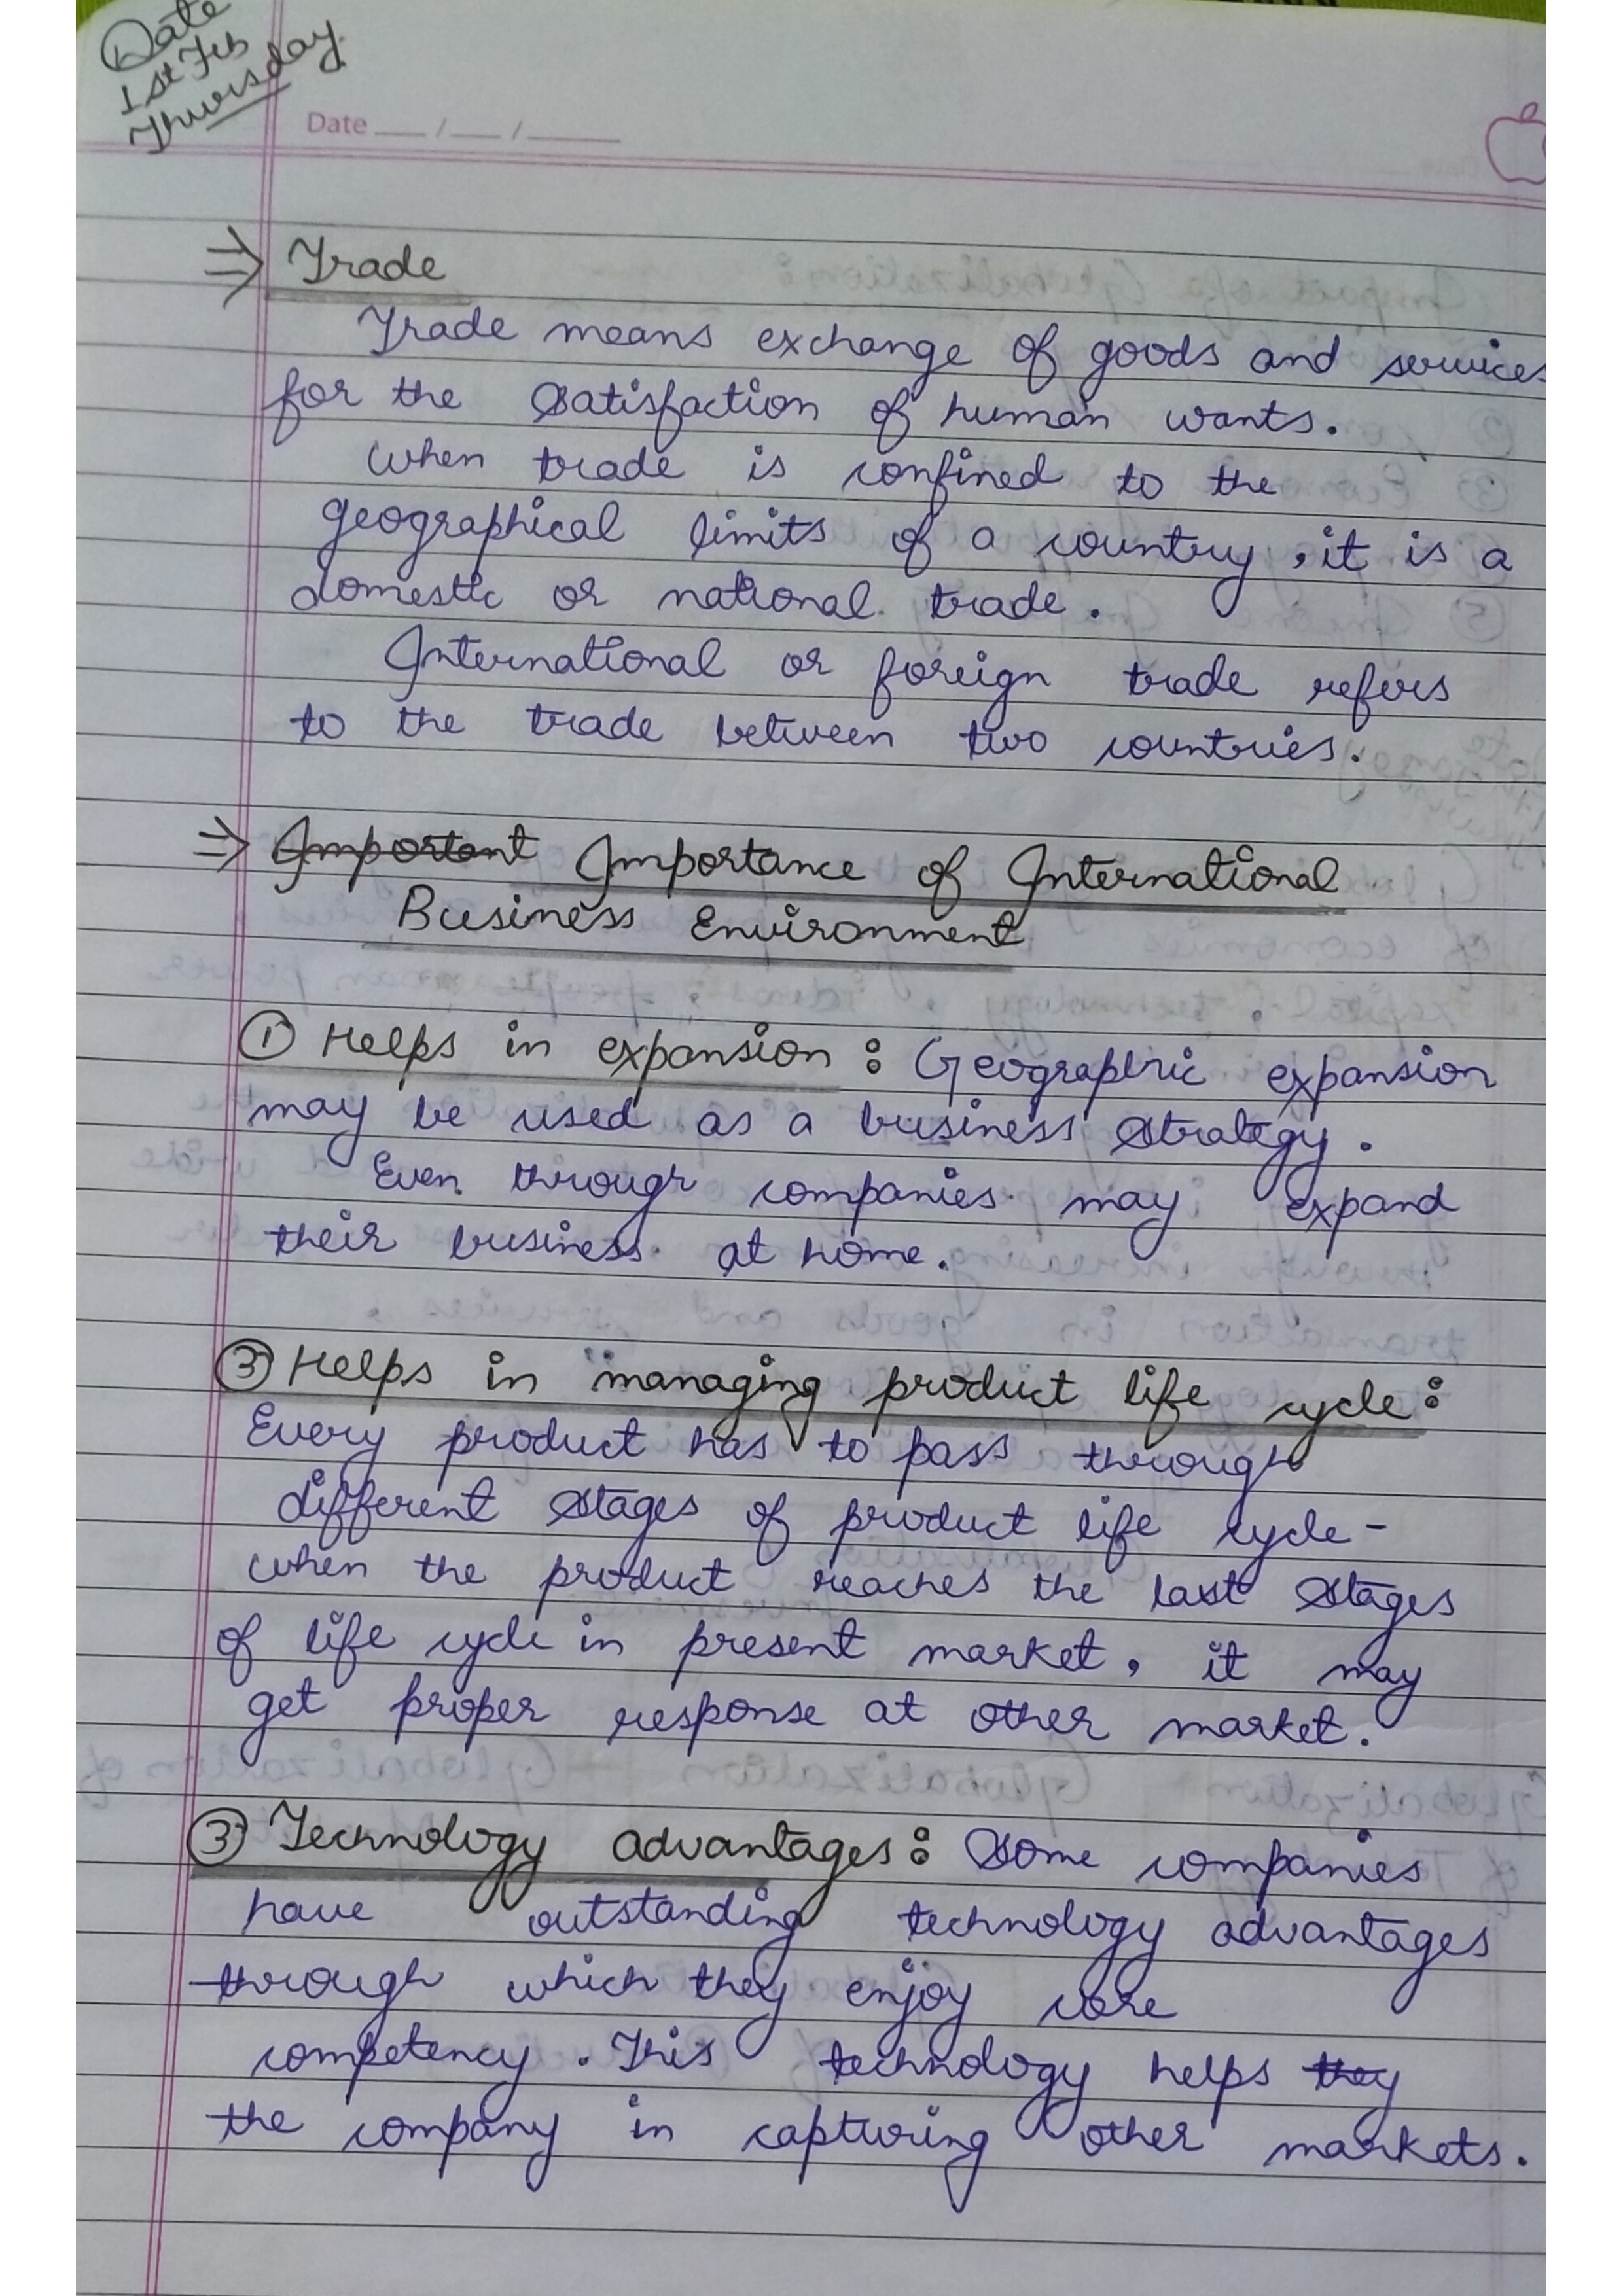 Date
1st Feb
Thursday
Date __/__/____
⇒ Trade
Trade means exchange of goods and services
for the satisfaction of human wants.
when trade is confined to the
geographical limits of a country, it is a
domestic or national trade.
International or foreign trade refers
to the trade between two countries.
⇒ ~~Important~~ Importance of International
Business Environment
① Helps in expansion : Geographric expansion
may be used as a business strategy.
Even through companies may expand
their business at home.
③ Helps in managing product life cycle :
Every product has to pass through
different stages of product life cycle -
when the product reaches the last stages
of life cycle in present market, it may
get proper response at other market.
③ Technology advantages : Some companies
have outstanding technology advantages
through which they enjoy core
competency. This technology helps ~~they~~
the company in capturing other markets.